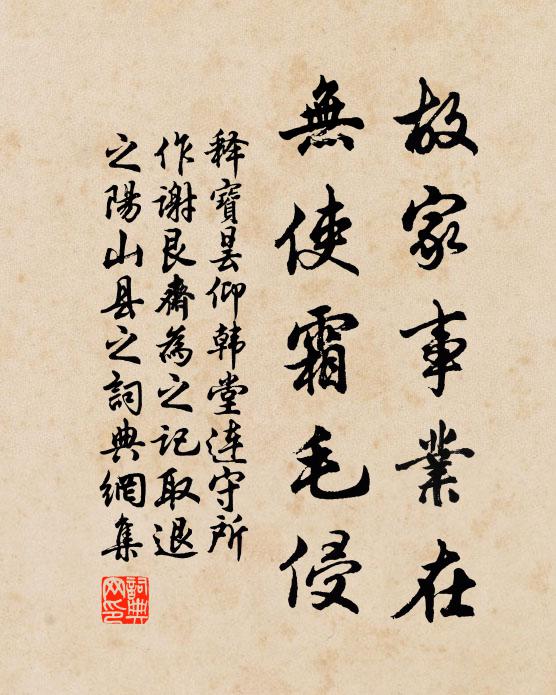 故家事業在
無使霜毛侵
释寶曇仰韩堂連守所
作谢艮齋為之记取退
之陽山县之詞典網集
詞典网印